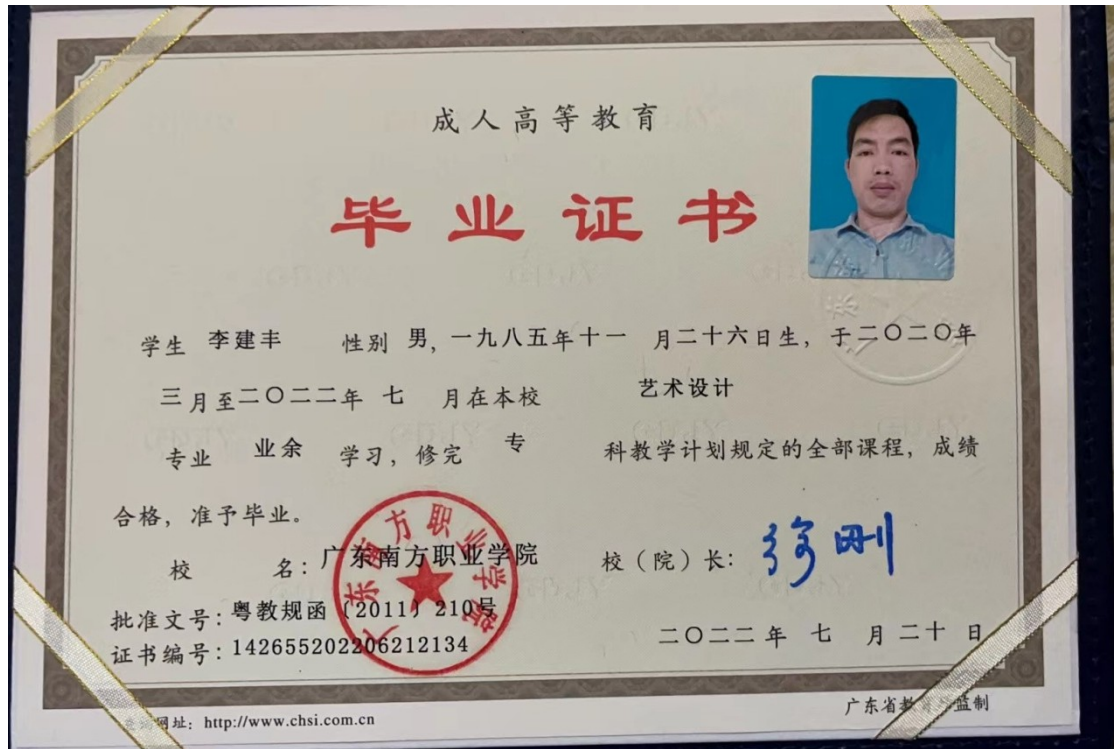 成人高等教育
毕业证书
学生 李建丰 性别 男，一九八五年十一 月二十六日生，于二〇二〇年
三月至二〇二二年 七 月在本校 艺术设计
专业 业余 学习，修完 专 科教学计划规定的全部课程，成绩
合格，准予毕业。
校 名：广东南方职业学院 校（院）长：徐刚
广东南方职业学院
批准文号：粤教规函〔2011〕210号
证书编号：142655202206212134 二〇二二年 七 月二十 日
网址：http://www.chsi.com.cn 广东省教 监制